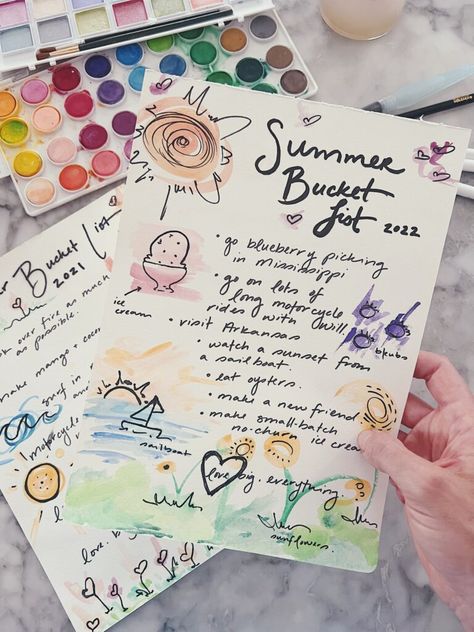 Summer
Bucket
List 2022
• go blueberry picking
in Mississippi
• go on lots of
long motorcycle
rides with Will.
• visit Arkansas
• watch a sunset from
a sailboat.
• eat oysters.
• make a new friend
• make small-batch
no-churn ice crea
love big. everything.
ice
cream
sailboat
blubs
sunflowers.
Bucket List
2021
over fire as much
as possible.
make mango + coco
surf in
motorcycle
love. big